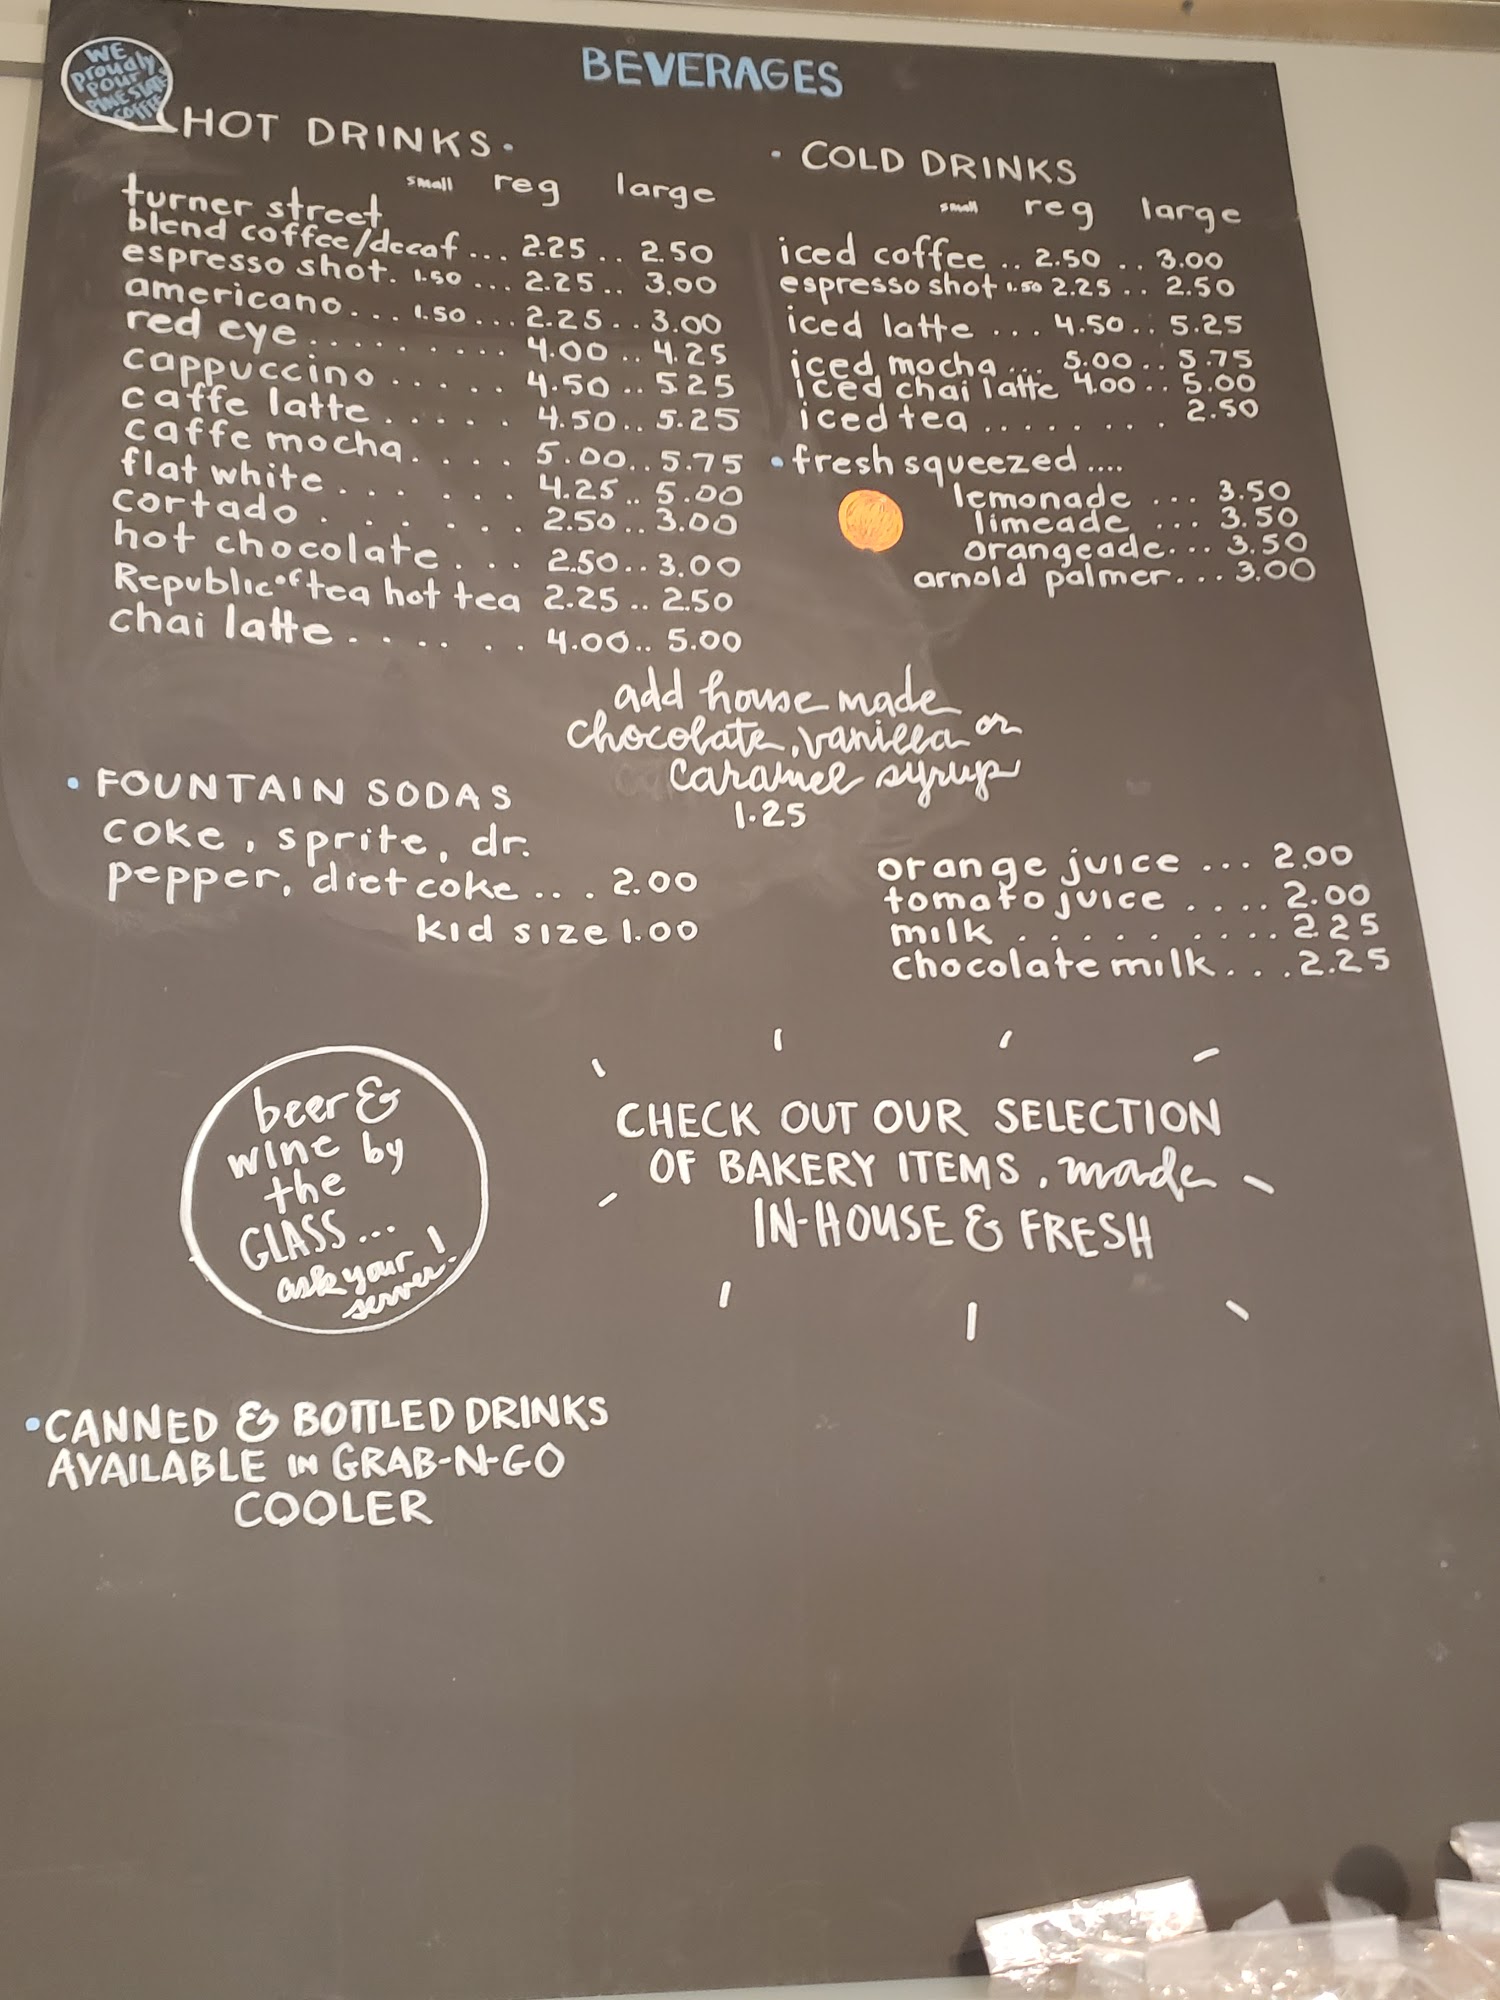 WE
proudly
pour
PINE STATE
COFFEE
BEVERAGES
HOT DRINKS
small reg large
turner street
blend coffee/decaf ... 2.25 .. 2.50
espresso shot. 1.50 ... 2.25 .. 3.00
americano ... 1.50 ... 2.25 .. 3.00
red eye ......... 4.00 .. 4.25
cappuccino ..... 4.50 .. 5.25
caffe latte ..... 4.50 .. 5.25
caffe mocha .... 5.00 .. 5.75
flat white ...... 4.25 .. 5.00
cortado ...... 2.50 .. 3.00
hot chocolate ... 2.50 .. 3.00
Republic of tea hot tea 2.25 .. 2.50
chai latte ...... 4.00 .. 5.00
COLD DRINKS
small reg large
iced coffee .. 2.50 .. 3.00
espresso shot 1.50 2.25 .. 2.50
iced latte ... 4.50 .. 5.25
iced mocha ... 5.00 .. 5.75
iced chai latte 4.00 .. 5.00
iced tea ........ 2.50
fresh squeezed ....
lemonade ... 3.50
limeade ... 3.50
orangeade... 3.50
arnold palmer... 3.00
add house made
chocolate, vanilla or
caramel syrup
1.25
FOUNTAIN SODAS
coke, sprite, dr.
pepper, diet coke ... 2.00
kid size 1.00
orange juice ... 2.00
tomato juice .... 2.00
milk ......... 2 25
chocolate milk ... 2.25
beer &
wine by
the
GLASS...
ask your
server!
CHECK OUT OUR SELECTION
OF BAKERY ITEMS, made
IN-HOUSE & FRESH
CANNED & BOTTLED DRINKS
AVAILABLE IN GRAB-N-GO
COOLER